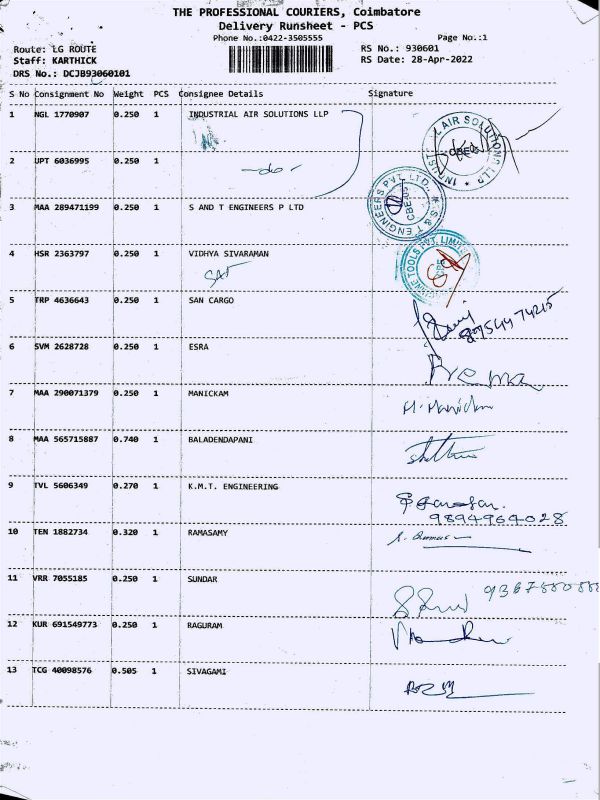 THE PROFESSIONAL COURIERS, Coimbatore
Delivery Runsheet - PCS
Phone No.:0422-3505555 Page No.:1
Route: LG ROUTE RS No.: 930601
Staff: KARTHICK RS Date: 28-Apr-2022
DRS No.: DCJB93060101
S No Consignment No Weight PCS Consignee Details Signature
1 NGL 1770907 0.250 1 INDUSTRIAL AIR SOLUTIONS LLP
2 UPT 6036995 0.250 1
-do-
3 MAA 289471199 0.250 1 S AND T ENGINEERS P LTD
4 HSR 2363797 0.250 1 VIDHYA SIVARAMAN
5 TRP 4636643 0.250 1 SAN CARGO
6 SVM 2628728 0.250 1 ESRA
Prema
7 MAA 290071379 0.250 1 MANICKAM
M. Manickam
8 MAA 565715887 0.740 1 BALADENDAPANI
9 TVL 5606349 0.270 1 K.M.T. ENGINEERING
9894964028
10 TEN 1882734 0.320 1 RAMASAMY
11 VRR 7055185 0.250 1 SUNDAR
12 KUR 691549773 0.250 1 RAGURAM
13 TCG 40098576 0.505 1 SIVAGAMI